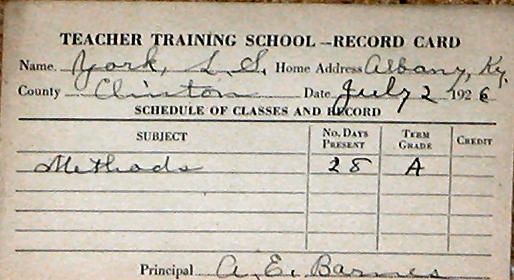 TEACHER TRAINING SCHOOL—RECORD CARD
Name York, L. S. Home Address Albany, Ky.
County Clinton Date July 2 1926
SCHEDULE OF CLASSES AND RECORD
SUBJECT NO. DAYS PRESENT TERM GRADE CREDIT
Methods 28 A
Principal A. E. Barnes